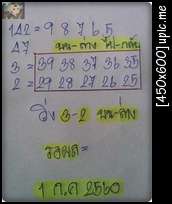 142 = 9 8 7 6 5
47 บน-ล่าง ไป-กลับ
3 = 39 38 37 36 35
2 = 29 28 27 26 25
วิ่ง 3-2 บน-ล่าง
รอผล =
1 ก.ค 2560
[450x600] upic.me